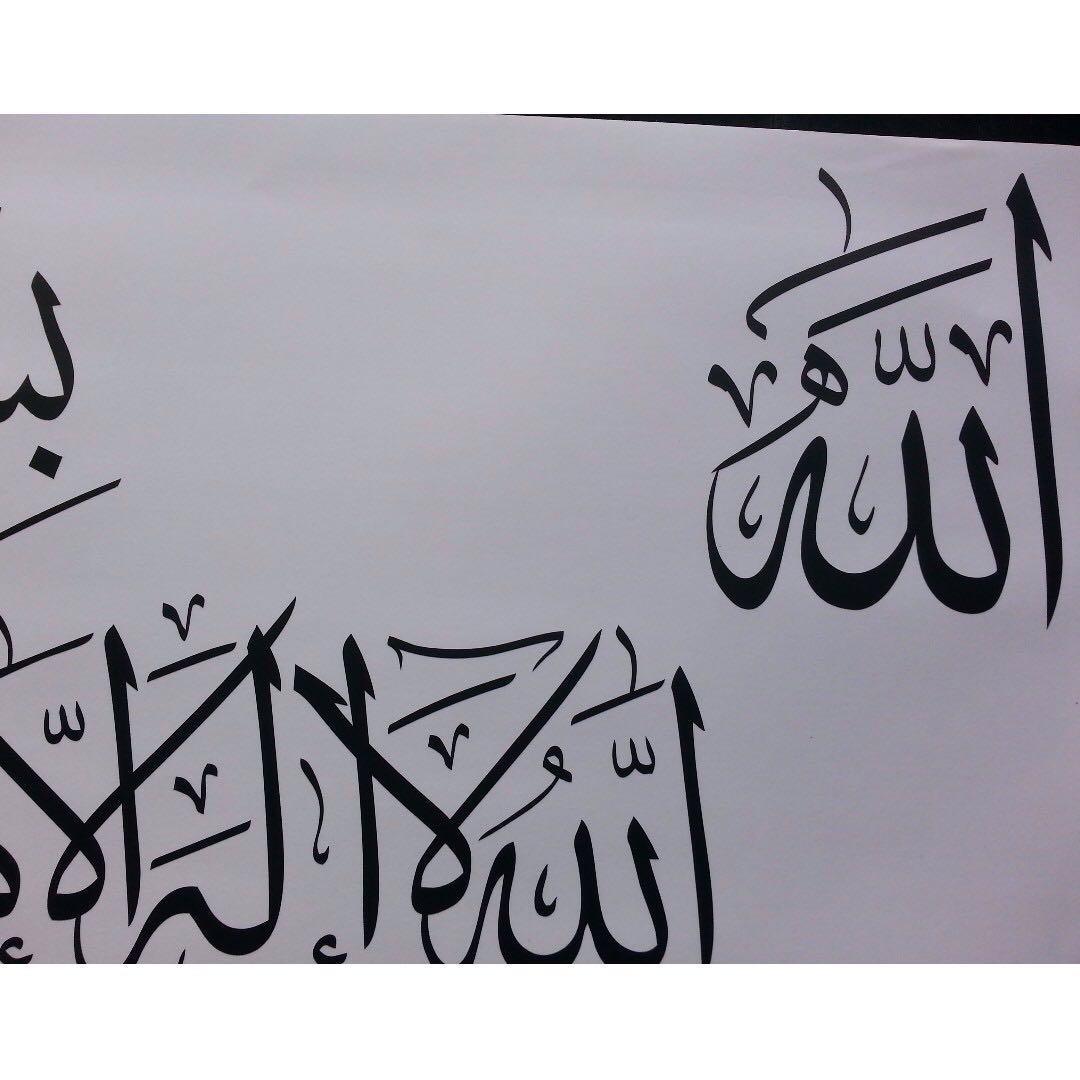 اللّٰهُ
اللّٰهُ لَآ إِلٰهَ إِلَّا